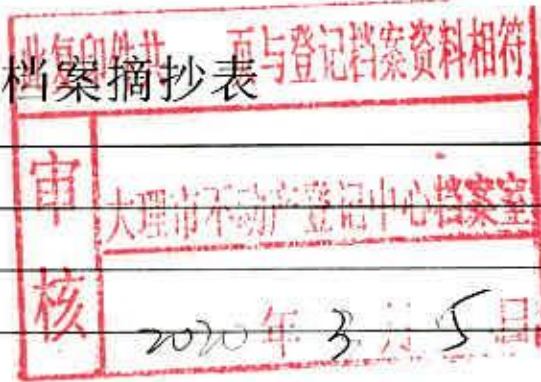 此复印件共 页与登记档案资料相符
档案摘抄表
审核
大理市不动产登记中心档案室
2020年3月5日